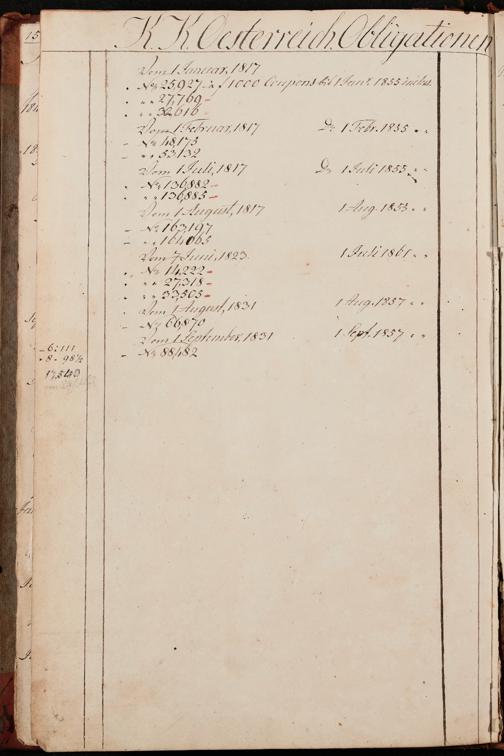 K. K. Oesterreich. Obligationen
Vom 1 Januar, 1817
No 25,927 f 1000 Coupons bis 1 Jan. 1855 inclus.
" " 27,769
" " 32,616
Vom 1 Februar, 1817 Do 1 Febr. 1855 " "
No 48,173
" " 53,132
Vom 1 Juli, 1817 Do 1 Juli 1855 " "
No 136,882
" " 136,885
Vom 1 August, 1817 1 Aug. 1853 " "
No 163,197
" " 164,065
Vom 7 Juni, 1823 1 Juli 1861 " "
No 14,222
" " 27,318
" " 33,505
Vom 1 August, 1831 1 Aug. 1857 " "
No 66,870
Vom 1 September, 1831 1 Sept. 1857 " "
No 88,482
6: 111
8 - 98½
17,543
15